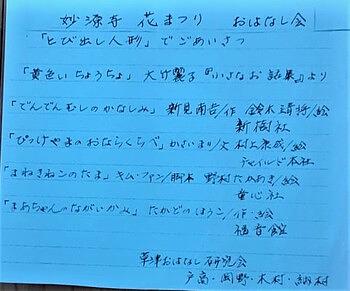 妙源寺 花まつり おはなし会
「とび出し人形」でごあいさつ
「黄色いちょうちょ」 『小さなお話集』より
「でんでんむしのかなしみ」 新見南吉/作 鈴木靖将/絵
新樹社
「ぴっけやまのおならくらべ」 かさいまり/文 村上康成/絵
チャイルド本社
「まねきねこのたま」 キム・ファン/脚本 野村たかあき/絵
童心社
「まあちゃんのながいかみ」 たかどのほうこ/作・絵
福音館
草津おはなし研究会
戸高・岡野・木村・